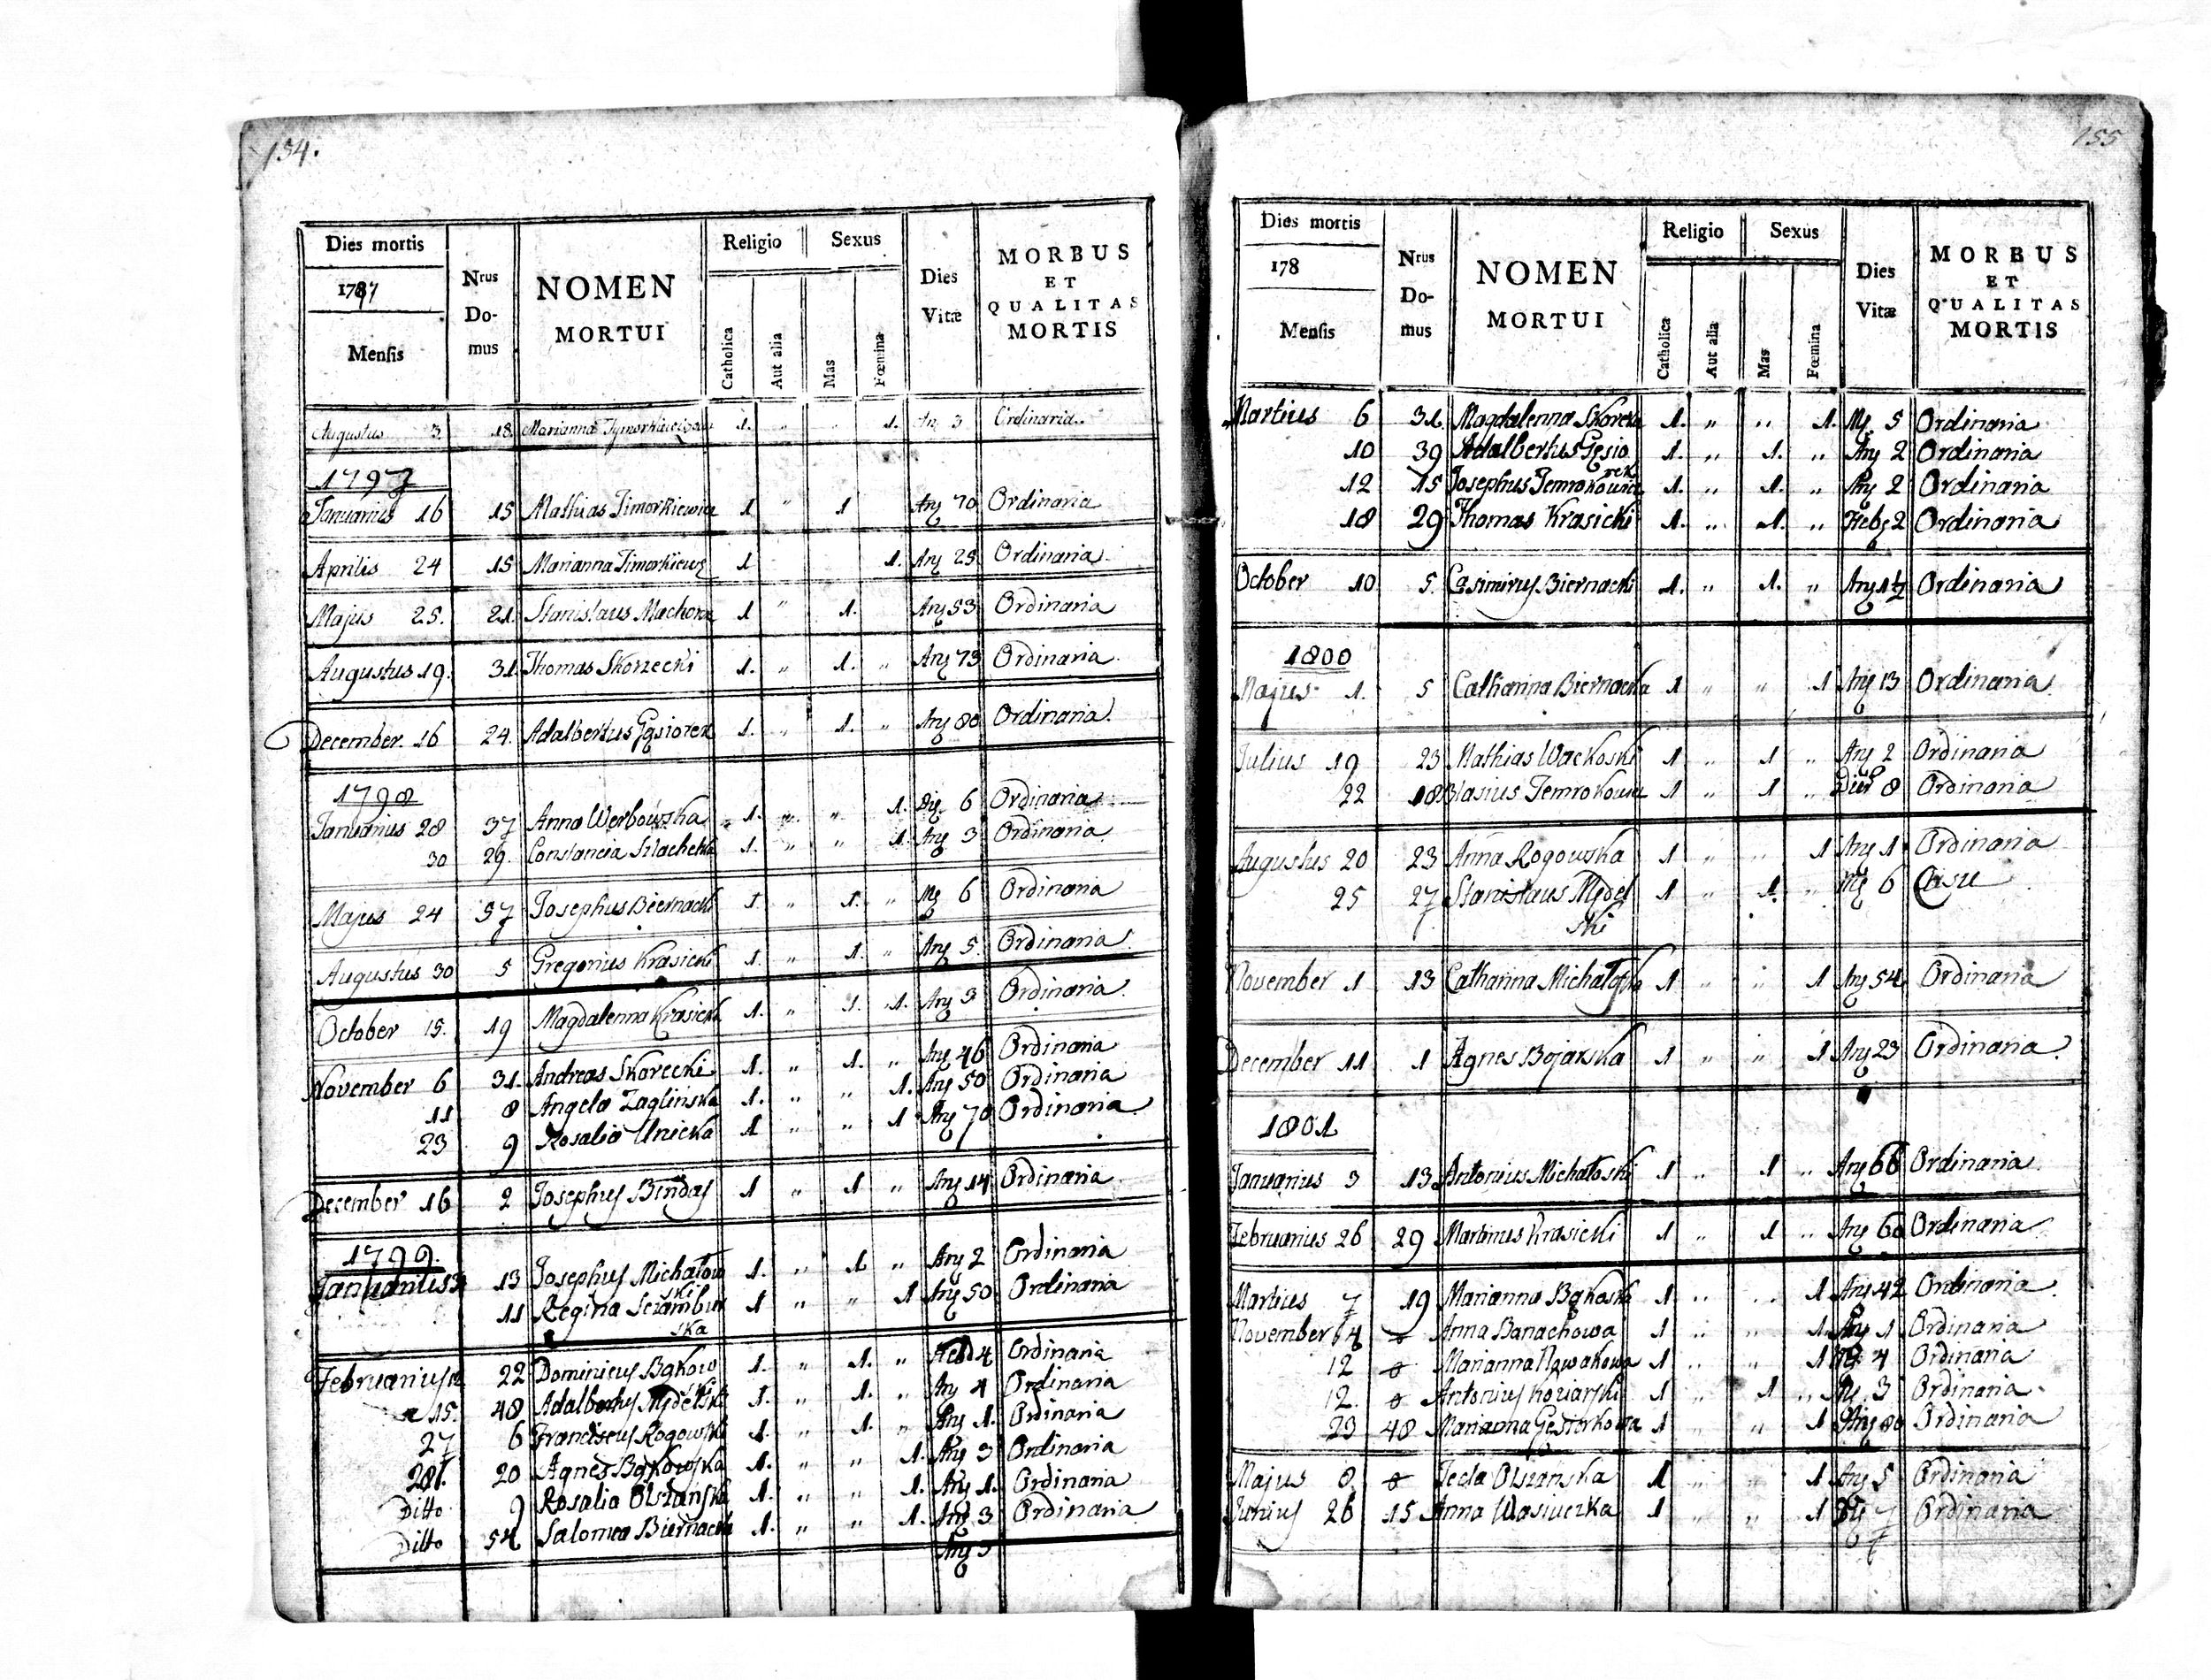 154.
Dies mortis Nrus Do- mus NOMEN MORTUI Religio Sexus Dies Vitæ MORBUS ET QUALITAS MORTIS
1787
Mensis Catholica Aut alia Mas Fœmina
Augustus 3. 18. Marianna 1. „ „ 1. An 3 Ordinaria
1797
Januarius 16 15 Mathias Timorkiewicz 1 „ 1 Any 70 Ordinaria
Aprilis 24 15 Marianna Timorkiewz 1 1. Any 25 Ordinaria
Majus 25. 21. Stanislaus Machora 1 „ 1. Any 53 Ordinaria
Augustus 19. 31. Thomas Skorzecki 1. „ 1. „ Any 73 Ordinaria
December 16 24. Adalbertus Gąsiorek 1. „ 1. „ Any 80 Ordinaria
1798
Januarius 28 37 Anna Werbowska 1. „ „ 1. 6 Ordinaria
30 29. Constancia 1. „ „ 1. Any 3 Ordinaria
Majus 24 57 Josephus Biernacki 1. „ 1. „ Mg 6 Ordinaria
Augustus 30 5 Gregorius Krasicki 1. „ 1. „ Any 5. Ordinaria
October 15. 19 Magdalenna Krasicka 1. „ 1. 1. Any 3 Ordinaria
November 6 31. Andreas Skorecki 1. „ 1. „ Any 46 Ordinaria
11 8 Angela Zaglinska 1. „ „ 1. Any 50 Ordinaria
23 9 Rosalia Unicka 1 „ „ 1 Any 70 Ordinaria
December 16 2 Josephus Bindas 1 „ 1 „ Any 14 Ordinaria
1799.
Januarius 13 Josephus Michałow 1. „ 1 „ Any 2 Ordinaria
ski
11 Regina Szrambur 1 „ „ 1 Any 50 Ordinaria
ska
Februarius 22 Dominicus Bąkow 1. „ 1. „ Hebd 4 Ordinaria
ski
15. 48 Adalbertus 1. „ 1. „ Any 4 Ordinaria
27 6 Franciscus Rogowski 1. „ 1. „ Any 1. Ordinaria
28. 20 Agnes Bąkowska 1. „ „ 1. Any 3 Ordinaria
Ditto 9 Rosalia Olszanska 1. „ „ 1. Any 1. Ordinaria
Ditto 54 Salomea Biernacka 1. „ „ 1. Any 3 Ordinaria
Any 3
155
Dies mortis Nrus Do- mus NOMEN MORTUI Religio Sexus Dies Vitæ MORBUS ET QUALITAS MORTIS
178
Mensis Catholica Aut alia Mas Fœmina
Martius 6 31. Magdalenna Skorecka 1. „ „ 1. Mg 5 Ordinaria
10 39 Adalbertus Gęsio 1. „ 1. „ Any 2 Ordinaria
rek
12 15 Josephus 1. „ 1. „ Any 2 Ordinaria
18 29 Thomas Krasicki 1. „ 1. „ Heb 2 Ordinaria
October 10 5. Casimirus Biernacki 1. „ 1. „ Any 1½ Ordinaria
1800
Majus 1. 5 Catharina Biernacka 1 „ „ 1 Any 13 Ordinaria
Julius 19 23 Mathias Wackoski 1 „ 1 „ Any 2 Ordinaria
22 18 Blasius 1 „ 1 „ Dier 8 Ordinaria
Augustus 20 23 Anna Rogowska 1 „ „ 1 Any 1 Ordinaria
25 27 Stanislaus Mydel 1 „ 1. „ Mg 6 Casu
ski
November 1 13 Catharina Michałoska 1 „ „ 1 Any 54 Ordinaria
December 11 1 Agnes Bojarska 1 „ „ 1 Any 23 Ordinaria
1801
Januarius 3 13 Antonius Michałoski 1 „ 1 „ Any 66 Ordinaria
Februarius 26 29 Martinus Krasicki 1 „ 1 „ Any 60 Ordinaria
Martius 7 19 Marianna Bąkoska 1 „ „ 1 Any 42 Ordinaria
November 4 0 Anna Banachowa 1 „ „ 1. Any 1 Ordinaria
12 0 Marianna Nowakowa 1 „ „ 1 4 Ordinaria
12. 0 Antonius Koziarski 1 „ 1 „ 3 Ordinaria
23 48 Marianna Gęsiorkowa 1 „ „ 1 Any 80 Ordinaria
Majus 8. 0 Tecla Olszanska 1 „ „ 1 Any 5 Ordinaria
Junius 26 15 Anna 1 „ „ 1 7 Ordinaria